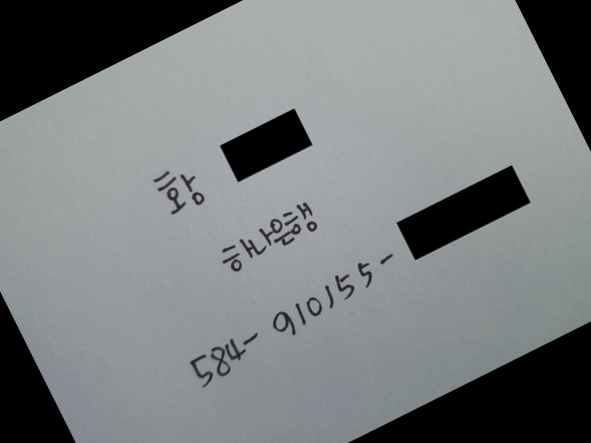 황
하나은행
584- 910155-